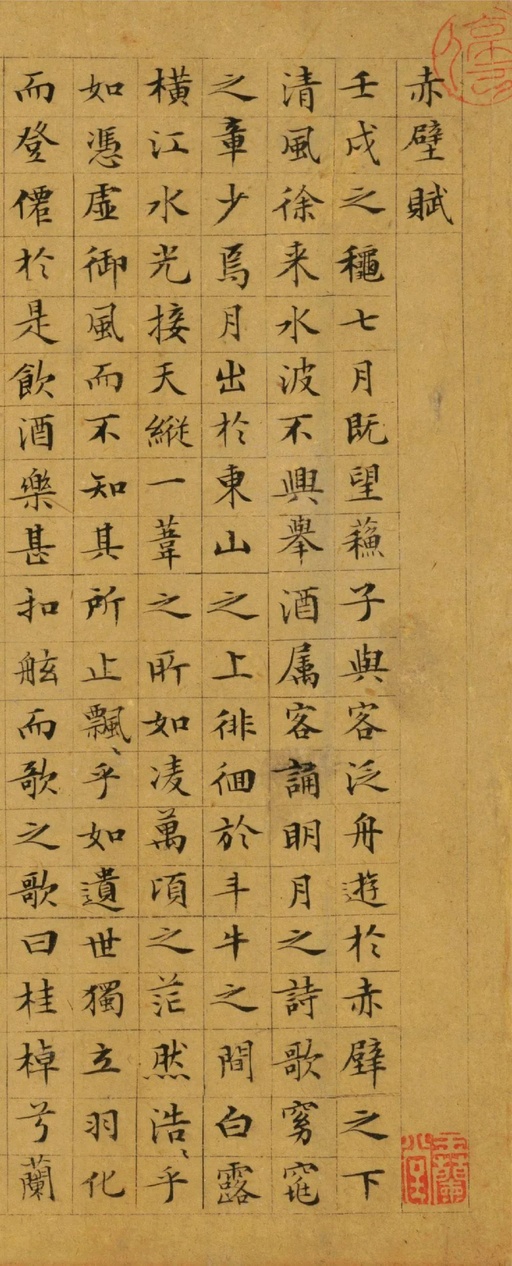 赤壁賦
壬戌之龝七月既望蘓子與客泛舟遊於赤壁之下
清風徐来水波不興舉酒属客誦明月之詩歌窈窕
之章少焉月出於東山之上徘徊於斗牛之間白露
橫江水光接天縱一葦之所如凌萬頃之茫然浩〻乎
如憑虛御風而不知其所止飄〻乎如遺世獨立羽化
而登僊於是飲酒樂甚扣舷而歌之歌曰桂棹兮蘭
玉蘭堂